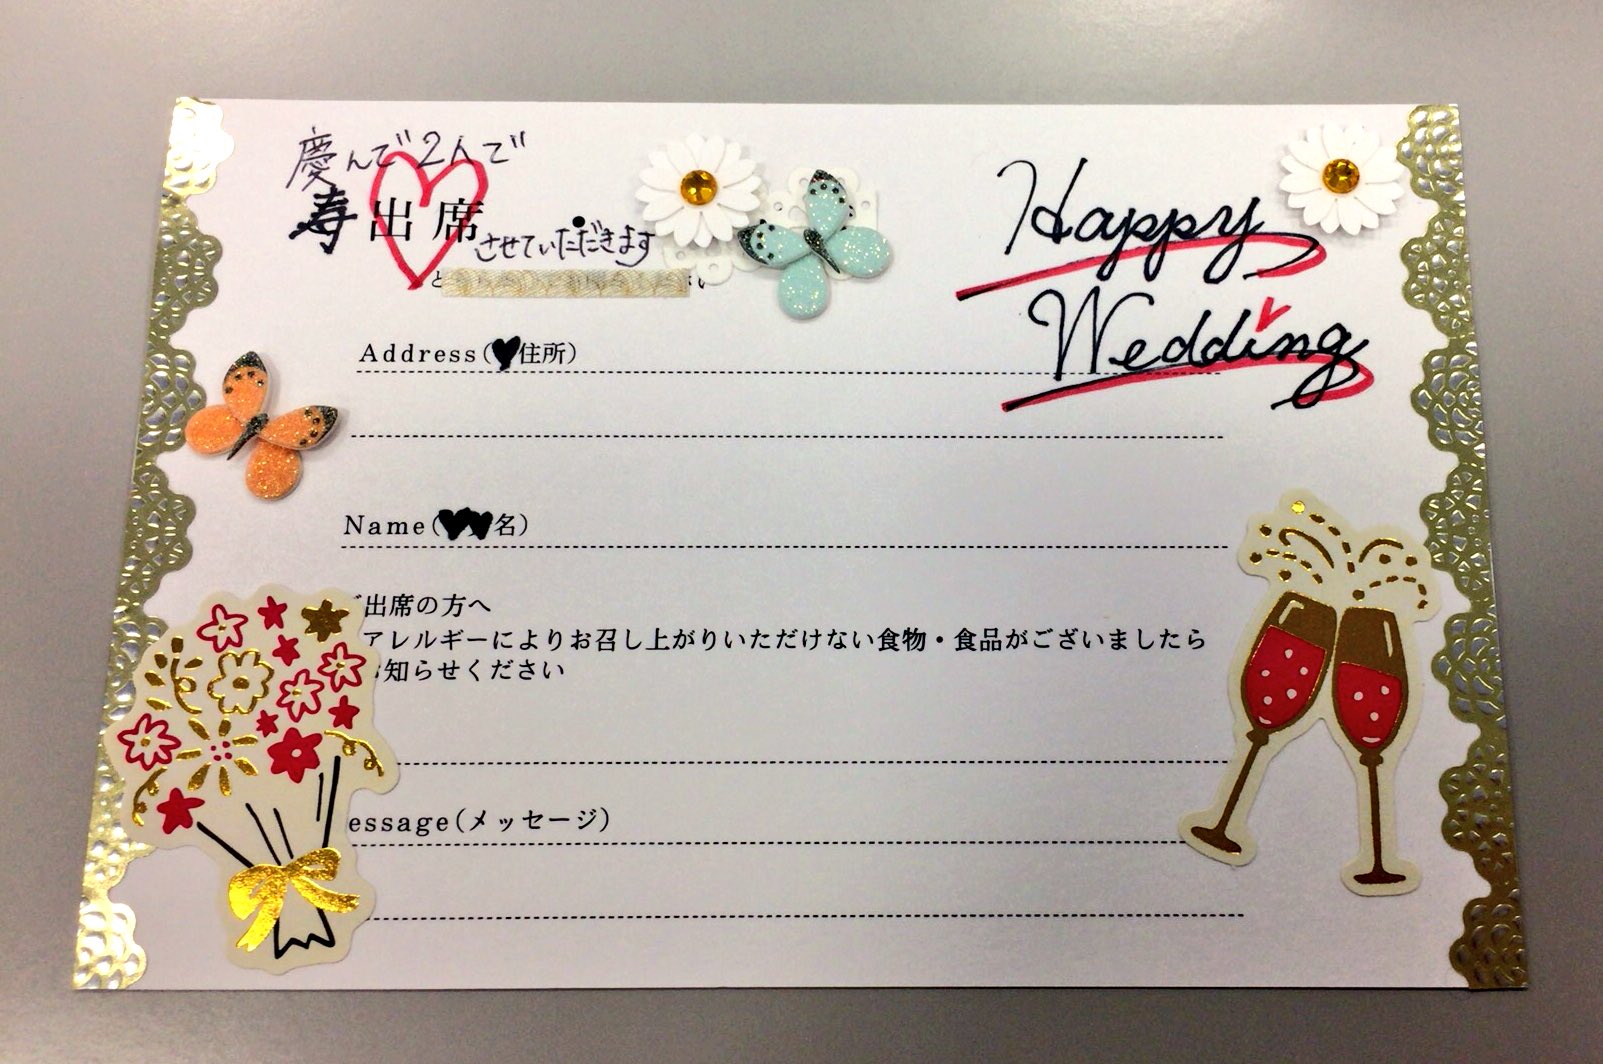 慶んで2人で
寿出席させていただきます
Happy
Wedding
Address(住所)
Name(名)
出席の方へ
アレルギーによりお召し上がりいただけない食物・食品がございましたら
知らせください
essage(メッセージ)